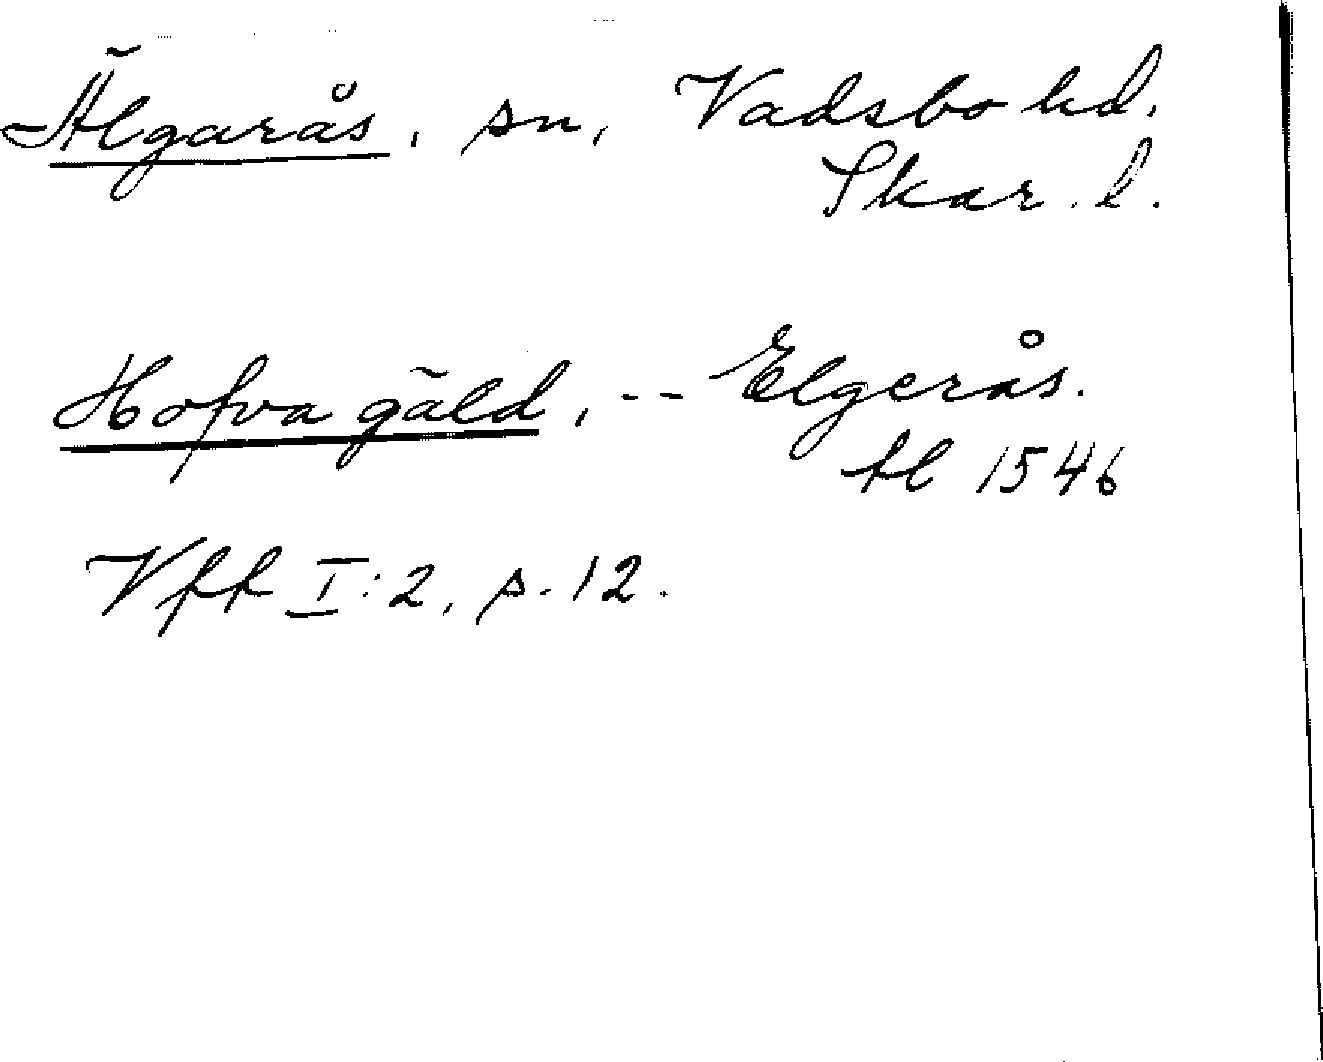 Älgarås, sn, Vadsbo hd.
Skar. l.
Hofva gäld, -- Elgerås.
tl 1546
Vff I:2, s. 12.